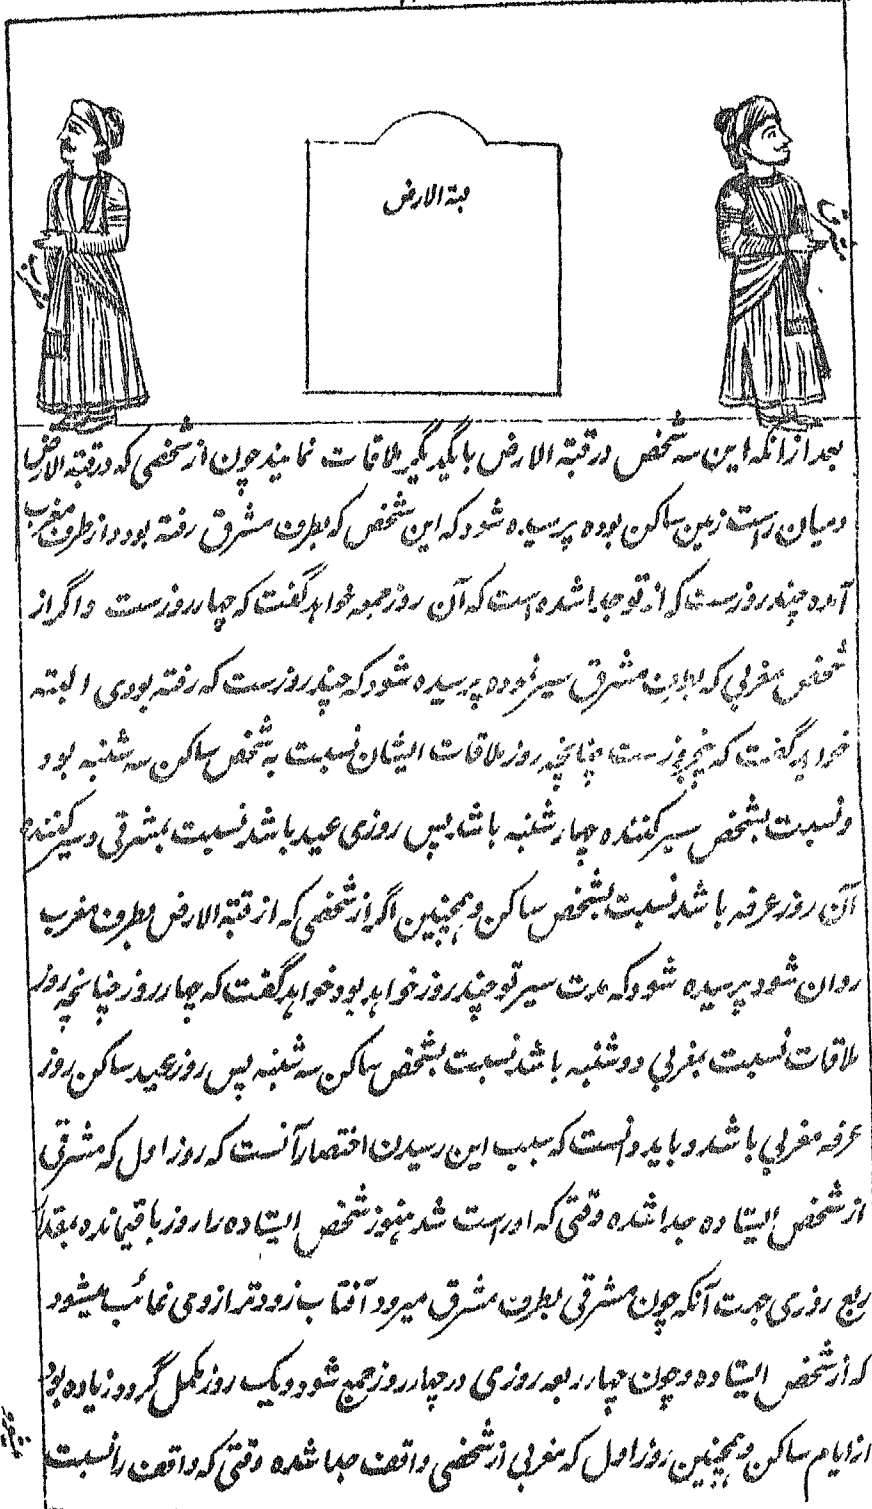 قبة الارض
مشرق
مغرب
بعد ازانکه این سه شخص در قبة الارض با یکدیگر ملاقات نمایند چون از شخصی که در قبة الارض
و میان راست زمین ساکن بوده پرسیده شود که این شخص که بطرف مشرق رفته بود و از طرف مغرب
آمده چند روزست که از تو جدا شده است که آن روز جمعه خواهد گفت که چهار روزست و اگر از
شخص مغربی که بدان مشرق سیر نموده پرسیده شود که چند روزست که رفته بودی البته
خواهد گفت که پنجروزست چنانچه روز ملاقات ایشان نسبت به شخص ساکن سه شنبه بود
و نسبت بشخص سیر کننده چهار شنبه باشد پس روزی عید باشد نسبت بمشرقی و سیر کننده
آن روز عرفه باشد نسبت بشخص ساکن و همچنین اگر از شخصی که از قبة الارض بطرف مغرب
روان شود پرسیده شود که مدت سیر تو چند روز خواهد بود خواهد گفت که چهار روز چنانچه روز
ملاقات نسبت بمغربی دوشنبه باشد نسبت بشخص ساکن سه شنبه پس روز عید ساکن روز
عرفه مغربی باشد و باید دانست که سبب این رسیدن اختصار آنست که روز اول که مشرقی
از شخص ایستاده جدا شده وقتی که او راست شد هنوز شخص ایستاده را روز باقیمانده بمقدار
ربع روزی جهت آنکه چون مشرقی بطرف مشرق میرود آفتاب زودتر از وی غائب میشود
که از شخص ایستاده و چون چهار ربعه روزی در چهار روز جمع شود و یک روز مکمل گردد زیاده بود
از ایام ساکن و همچنین روز اول که مغربی از شخصی واقف جدا شده وقتی که واقف را نسبت